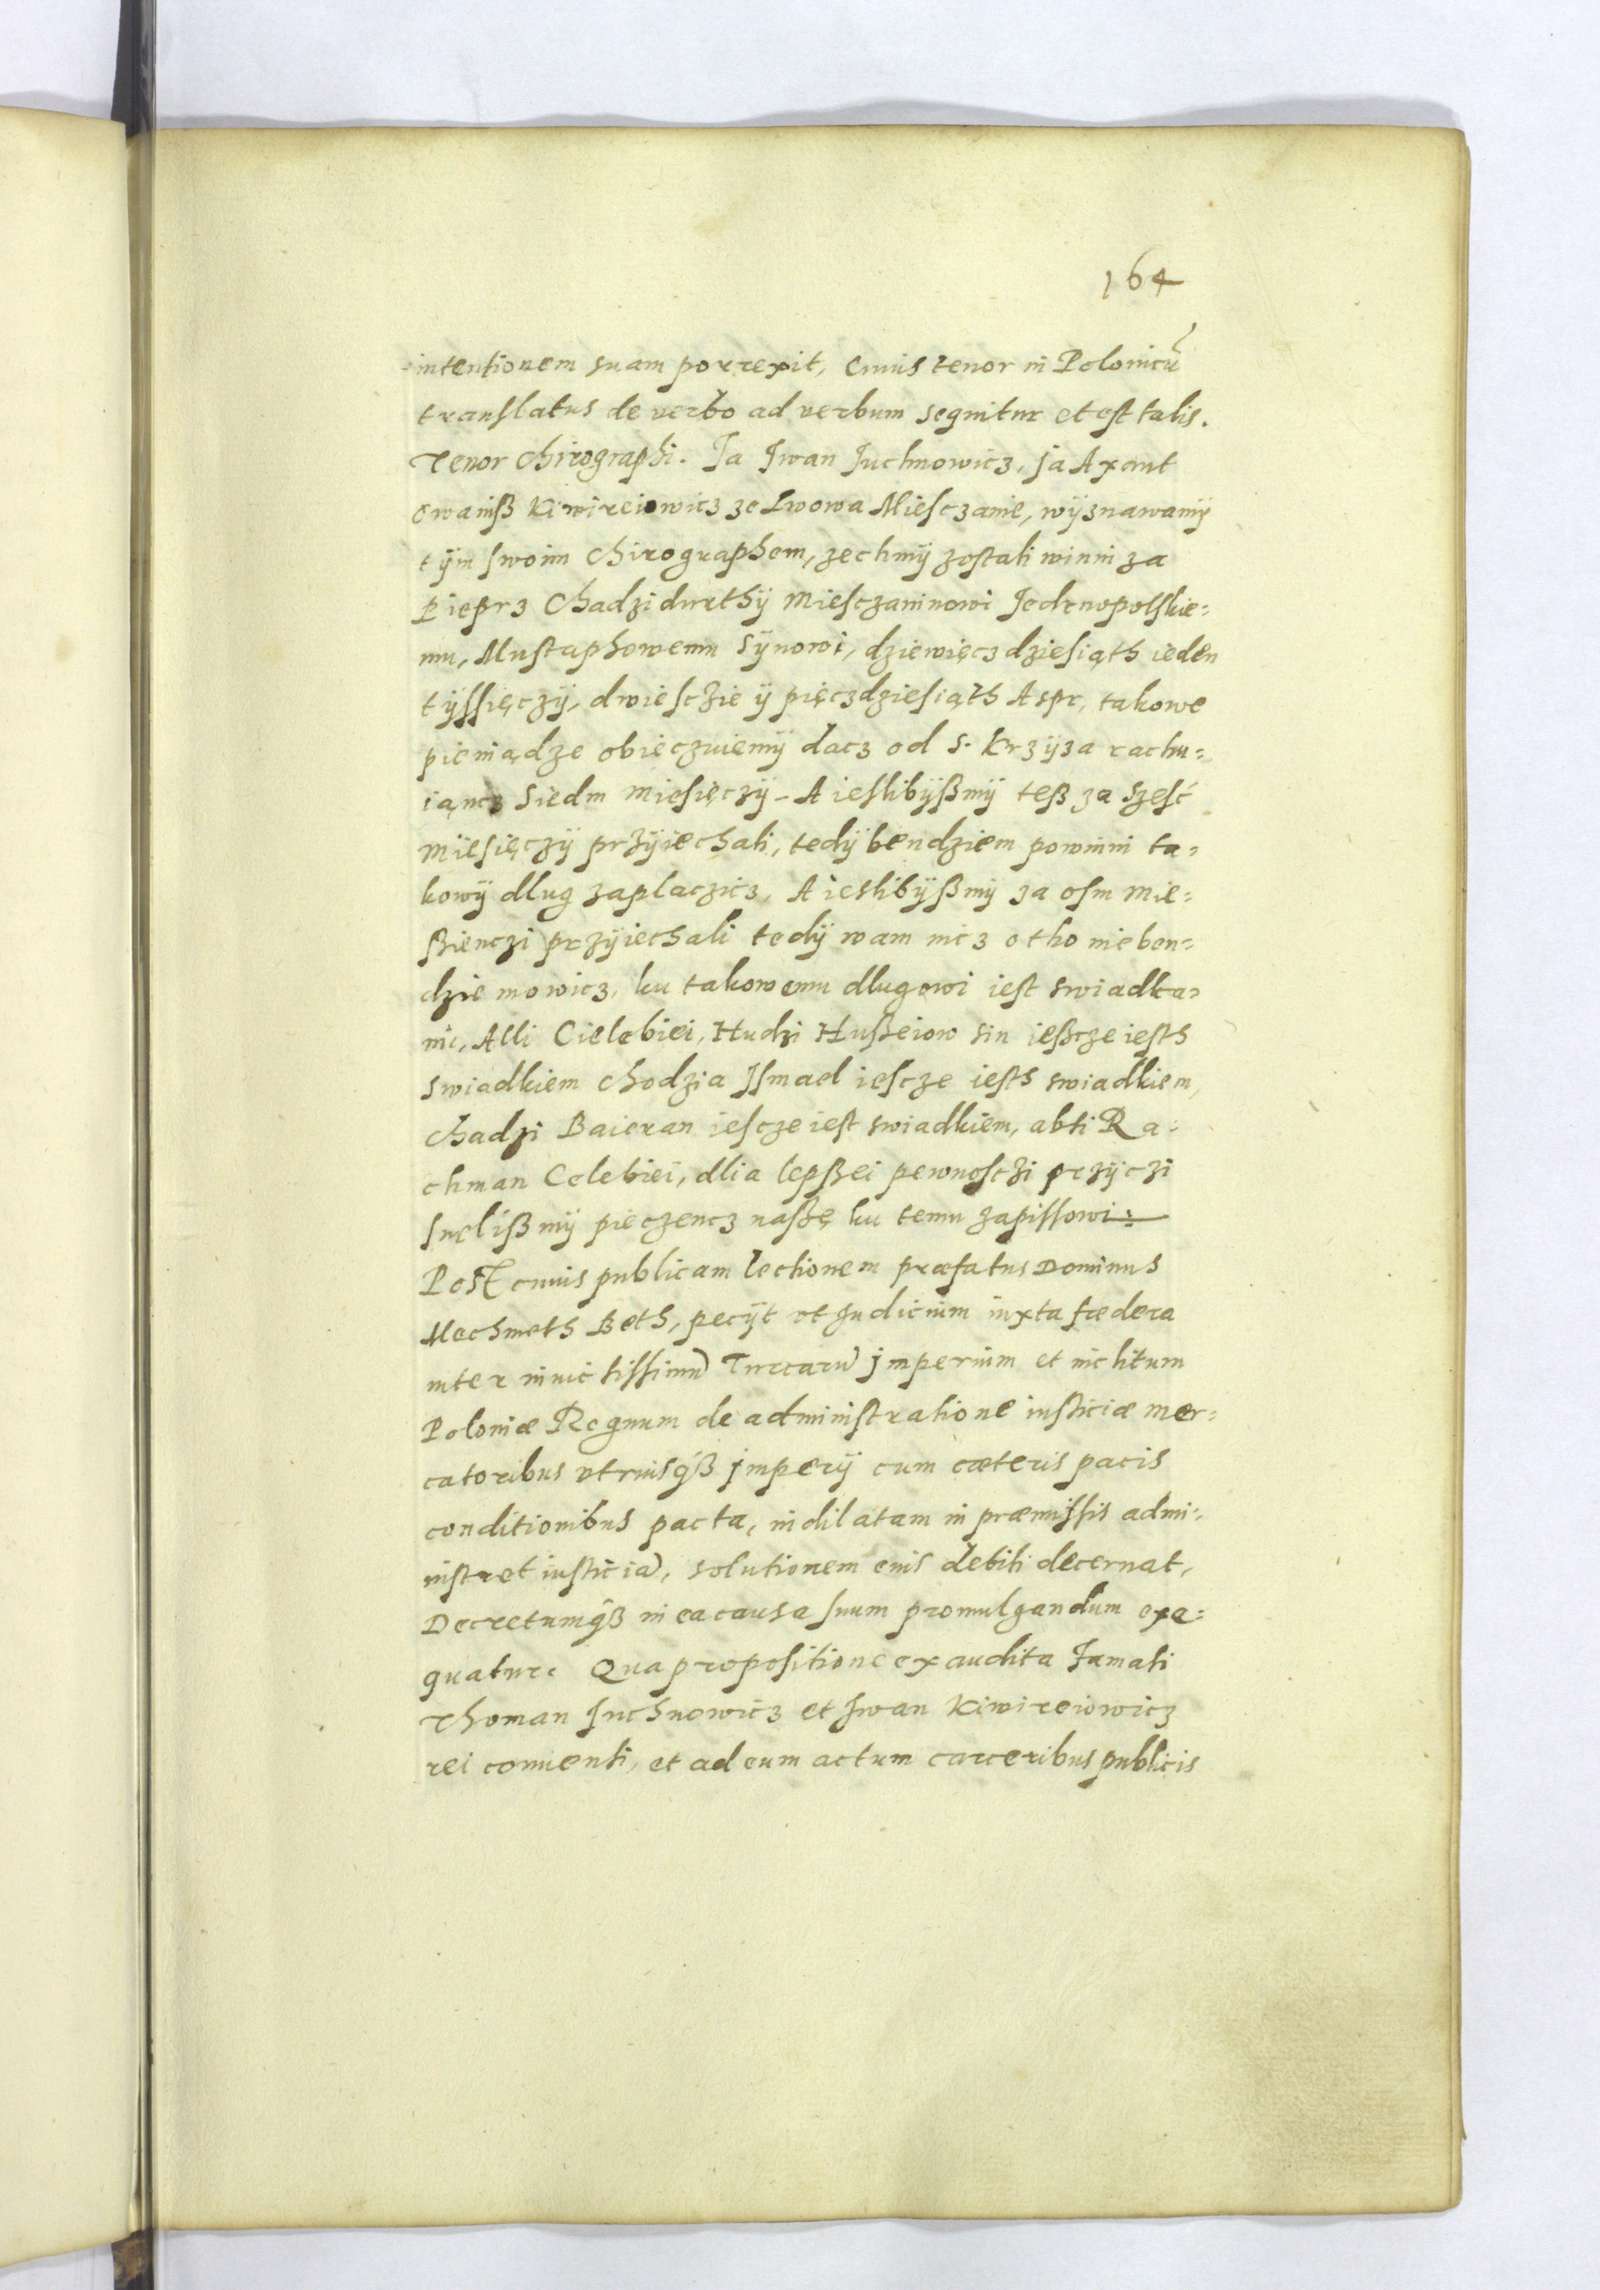 164
intentionem suam porrexit, cuius tenor in Polonicũ
translatus de verbo ad verbum sequitur et est talis.
Tenor chirographi. Ja Iwan Juchnowicz, ja Axent
Owaniß Kiwireiowicz ze Lwowa Miesczanie, wÿznawamÿ
tÿm swoim chirographem, zechmÿ zostali winni za
Pieprz Chadzi durthÿ miesczaninowi Jedrnopolskie=
mu, Mustaphowemu Sÿnowi, dziewięcz dziesiąth ieden
tÿssięczÿ, dwiesczie ÿ pięczdziesiąth Aspr, takowe
pieniądze obieczuiemÿ dacz od S. Krzÿza rachu=
iąncz Siedm miesięczÿ - A ieslibÿßmÿ teß za Szesć
miesięczÿ przÿiechali, tedÿ bendziem powinni ta=
kowÿ dlug zaplaczicz, A ieslibÿßmÿ za osm mie=
ßienczi przÿiechali tedÿ wam nicz otho nie ben=
dzie mowicz, ku takowemu dlugowi iest swiadka=
mi, Alli Cielebiei, Hudzi Hußeiow sin ießcze iesth
swiadkiem Chodzia Ismael iescze iesth swiadkiem,
Chadzi Baieran iescze iest swiadkiem, abti Ra=
chman Celebiei, dlia lepßei pewnosczi przÿczi
snęlißmÿ pieczencz naßę ku temu zapissowi:
Post cuius publicam lectionem præfatus Dominus
Mechmeth Beth, pecÿt vt Judicium iuxta fœdera
inter inuictissimũ Turcarũ jmperium et inclitum
Poloniæ Regnum de administratione iusticiæ mer=
catoribus vtriusqß jmperÿ cum cæteris pacis
conditionibus pacta, indilatam in præmissis admi=
nistret iusticiã, solutionem eius debiti decernat,
Decretumqß in ea causa suum promulgandum exe=
quatur. Qua propositione exaudita famati
Thoman Juchnowicz et Iwan Kiwireiowicz
rei conuenti, et ad eum actum carceribus publicis